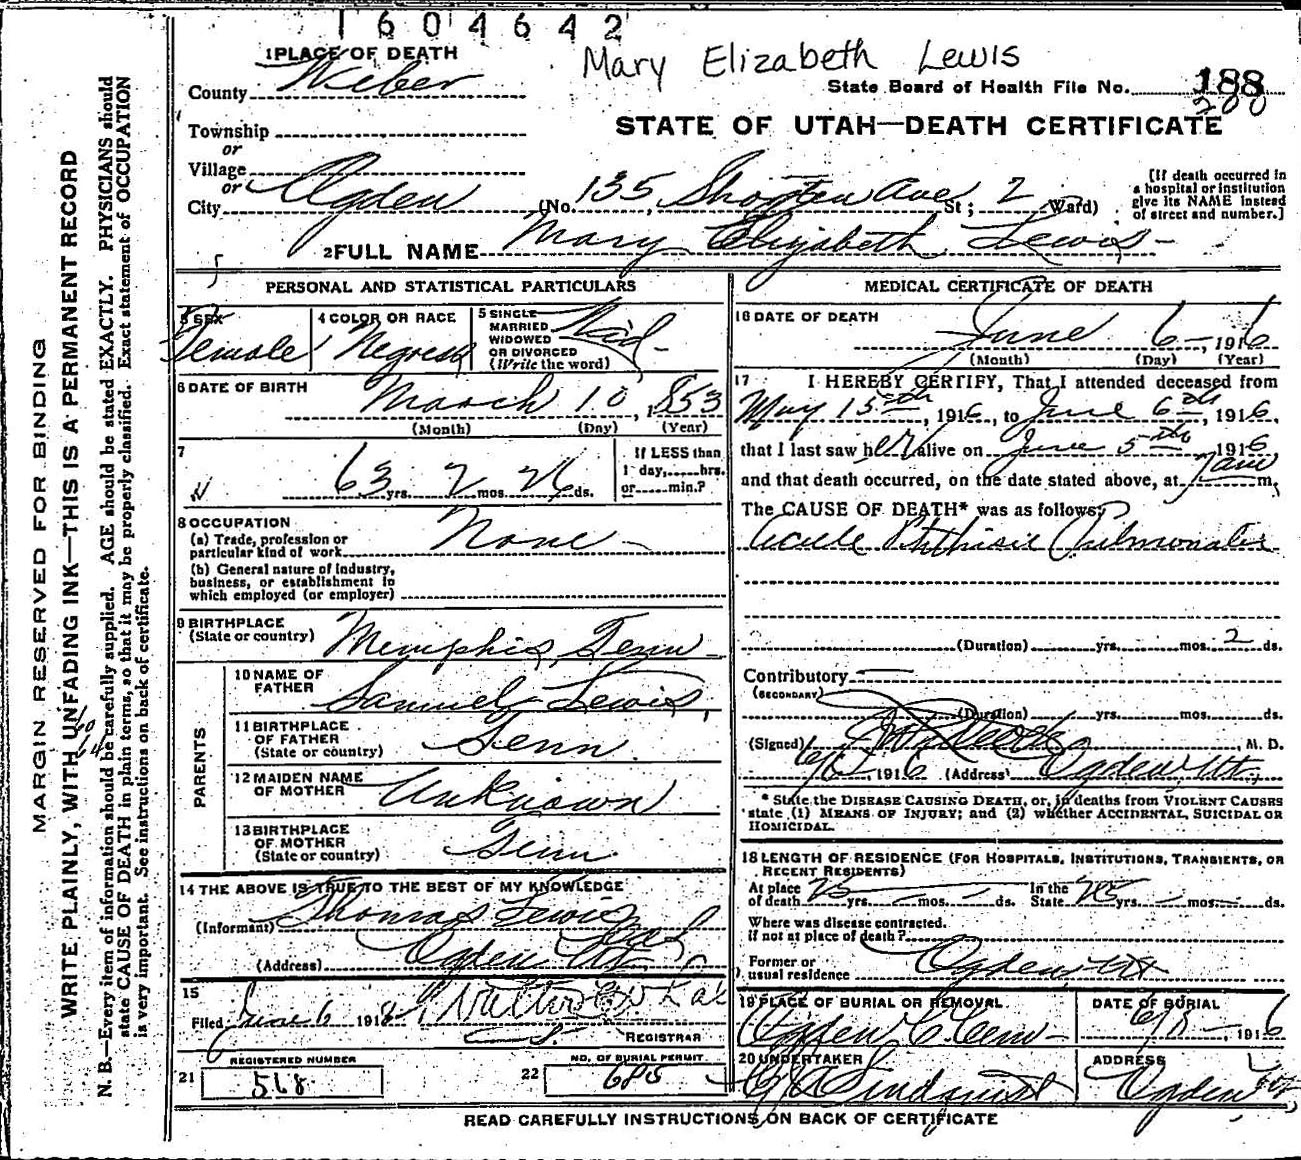 1604642
Mary Elizabeth Lewis
1 PLACE OF DEATH
County Weber
State Board of Health File No. 188
200
STATE OF UTAH—DEATH CERTIFICATE
Township
or
Village
or
City Ogden (No. 135 Ave St; 2 Ward)
[If death occurred in
a hospital or institution
give its NAME instead
of street and number.]
2 FULL NAME Mary Elizabeth Lewis
PERSONAL AND STATISTICAL PARTICULARS
3 SEX
Female
4 COLOR OR RACE
Negress
5 SINGLE
MARRIED
WIDOWED
OR DIVORCED
(Write the word)
Wid
6 DATE OF BIRTH
March 10, 1853
(Month) (Day) (Year)
7
63 yrs. 2 mos. 26 ds.
If LESS than
1 day,......hrs.
or......min.?
8 OCCUPATION
(a) Trade, profession or
particular kind of work None
(b) General nature of industry,
business, or establishment in
which employed (or employer)
9 BIRTHPLACE
(State or country) Memphis, Tenn
PARENTS
10 NAME OF
FATHER Samuel Lewis,
11 BIRTHPLACE
OF FATHER
(State or country) Tenn.
12 MAIDEN NAME
OF MOTHER Unknown
13 BIRTHPLACE
OF MOTHER
(State or country) Tenn.
14 THE ABOVE IS TRUE TO THE BEST OF MY KNOWLEDGE
(Informant) Thomas Lewis
(Address) Ogden Utah
15
Filed June 6 191
REGISTRAR
REGISTERED NUMBER
21 568
NO. OF BURIAL PERMIT
22 685
MEDICAL CERTIFICATE OF DEATH
16 DATE OF DEATH
June 6, 1916
(Month) (Day) (Year)
17 I HEREBY CERTIFY, That I attended deceased from
May 15th, 1916, to June 6th, 1916,
that I last saw her alive on June 5th 1916
and that death occurred, on the date stated above, at 7am m,
The CAUSE OF DEATH* was as follows:
Acute Phthisis Pulmonalis
(Duration) yrs. mos. 2 ds.
Contributory
(SECONDARY)
(Duration) yrs. mos. ds.
(Signed) , M. D.
1916 (Address) Ogden, Ut,
* State the DISEASE CAUSING DEATH, or, in deaths from VIOLENT CAUSES
state (1) MEANS OF INJURY; and (2) whether ACCIDENTAL, SUICIDAL OR
HOMICIDAL.
18 LENGTH OF RESIDENCE (FOR HOSPITALS, INSTITUTIONS, TRANSIENTS, OR
RECENT RESIDENTS)
At place
of death 25 yrs. mos. ds.
In the
State 25 yrs. mos. ds.
Where was disease contracted.
if not at place of death?
Former or
usual residence Ogden Ut
19 PLACE OF BURIAL OR REMOVAL
Ogden C. Cem
DATE OF BURIAL
6/8 1916
20 UNDERTAKER
ADDRESS
Ogden Ut
READ CAREFULLY INSTRUCTIONS ON BACK OF CERTIFICATE
MARGIN RESERVED FOR BINDING
WRITE PLAINLY, WITH UNFADING INK—THIS IS A PERMANENT RECORD
N. B.—Every item of information should be carefully supplied. AGE should be stated EXACTLY. PHYSICIANS should
state CAUSE OF DEATH in plain terms, so that it may be properly classified. Exact statement of OCCUPATION
is very important. See instructions on back of certificate.